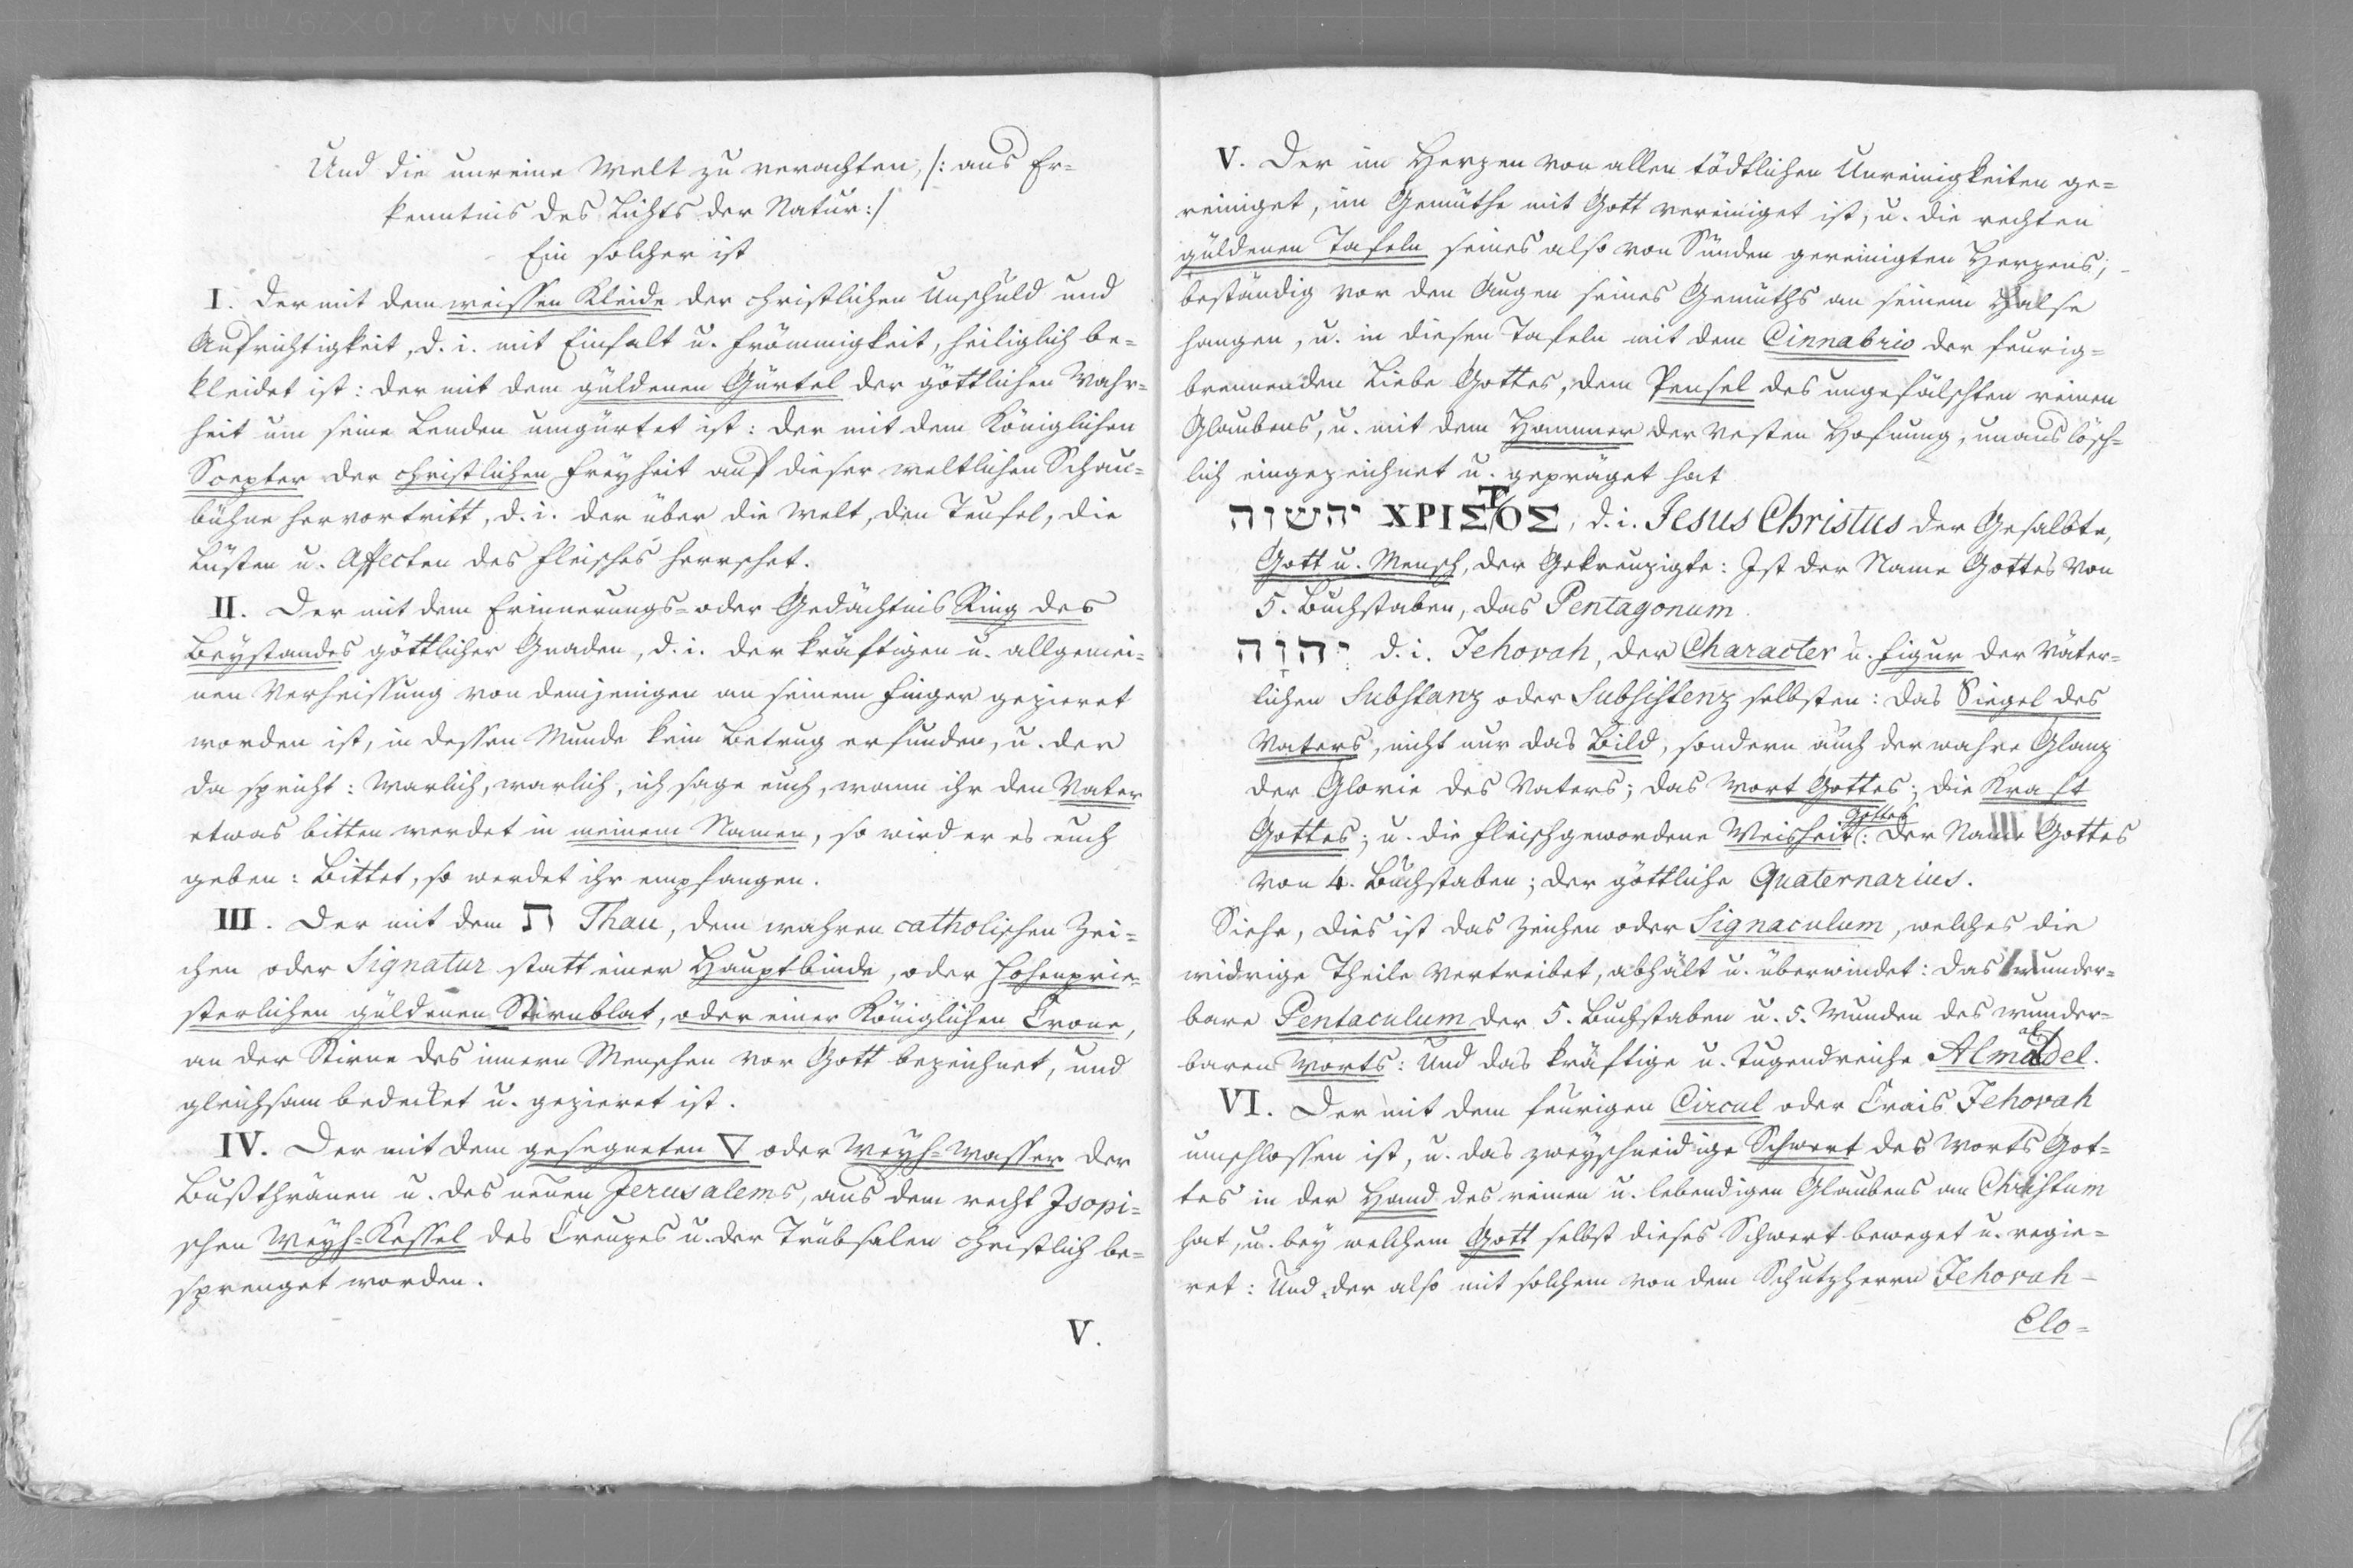 Und die unreine Welt zu verachten, /: aus Er=
kenntnis des Lichts der Natur :/
Ein solcher ist
I. Der mit dem weissen Kleide der christlichen Unschuld und
Aufrichtigkeit, d. i. mit Einfalt u. Frömmigkeit, heiliglich be=
kleidet ist: der mit dem güldenen Gürtel der göttlichen Wahr=
heit um seine Lenden umgürtet ist: der mit dem Königlichen
Scepter der christlichen Freyheit auf dieser weltlichen Schau=
bühne hervortritt, d. i. der über die Welt, den Teufel, die
Lüsten u. Affecten des Fleisches herrschet.
II. Der mit dem Erinnerungs= oder Gedächtnis Ring des
Beystandes göttlicher Gnaden, d. i. der kräftigen u. allgemei=
nen Verheissung von demjenigen an seinem Finger gezieret
worden ist, in dessen Munde kein Betrug erfunden, u. der
da spricht: Warlich, warlich, ich sage euch, wann ihr den Vater
etwas bitten werdet in meinem Namen, so wird er es euch
geben: Bittet, so werdet ihr empfangen.
III. Der mit dem ת Thau, dem wahren catholischen Zei=
chen oder Signatur statt einer Hauptbinde, oder hohenprie=
sterlichen güldenen Stirnblat, oder einer Königlichen Crone,
an der Stirne des innern Menschen vor Gott bezeichnet, und
gleichsam bedecket u. gezieret ist.
IV. Der mit dem gesegneten ▽ oder Weyh=Wasser der
Bußthränen u. des neuen Jerusalems, aus dem recht Isopi=
schen Weyh=Kessel des Creuzes u. der Trübsalen christlich be=
sprenget worden.
V.
V. Der im Herzen von allen tödtlichen Unreinigkeiten ge=
reiniget, im Gemüthe mit Gott vereiniget ist, u. die rechten
güldenen Tafeln seines also von Sünden gereinigten Herzens,
beständig vor den Augen seines Gemüths an seinem Halse
hangen, u. in diesen Tafeln mit dem Cinnabrio der feurig=
brennenden Liebe Gottes, dem Pensel des ungefälschten reinen
Glaubens, u. mit dem Hammer der vesten Hofnung, unauslösch=
lich eingezeichnet u. gepräget hat
יהשוה ΧΡΙΣΤΟΣ, d. i. Jesus Christus der Gesalbte,
Gott u. Mensch, der Gekreuzigte: Ist der Name Gottes von
5. Buchstaben, das Pentagonum.
יְהוָה d. i. Jehovah, der Character u. Figur der Väter=
lichen Substanz oder Subsistenz selbsten: das Siegel des
Vaters, nicht nur das Bild, sondern auch der wahre Glanz
der Glorie des Vaters; das Wort Gottes; die Kraft
Gottes; u. die fleischgewordene Weisheit Gottes: Der Name Gottes
von 4. Buchstaben; der göttliche Quaternarius.
Siehe, dies ist das Zeichen oder Signaculum, welches die
widrige Theile vertreibet, abhält u. überwindet: das wunder=
bare Pentaculum der 5. Buchstaben u. 5. Wunden des wunder=
baren Worts: Und das kräftige u. tugendreiche Almadel.
VI. Der mit dem feurigen Circul oder Crais Jehovah
umschlossen ist, u. das zweyschneidige Schwert des Worts Got=
tes in der Hand des reinen u. lebendigen Glaubens an Christum
hat, u. bey welchem Gott selbst dieses Schwert beweget u. regie=
ret: Und der also mit solchem von dem Schutzherrn Jehovah-
Elo=